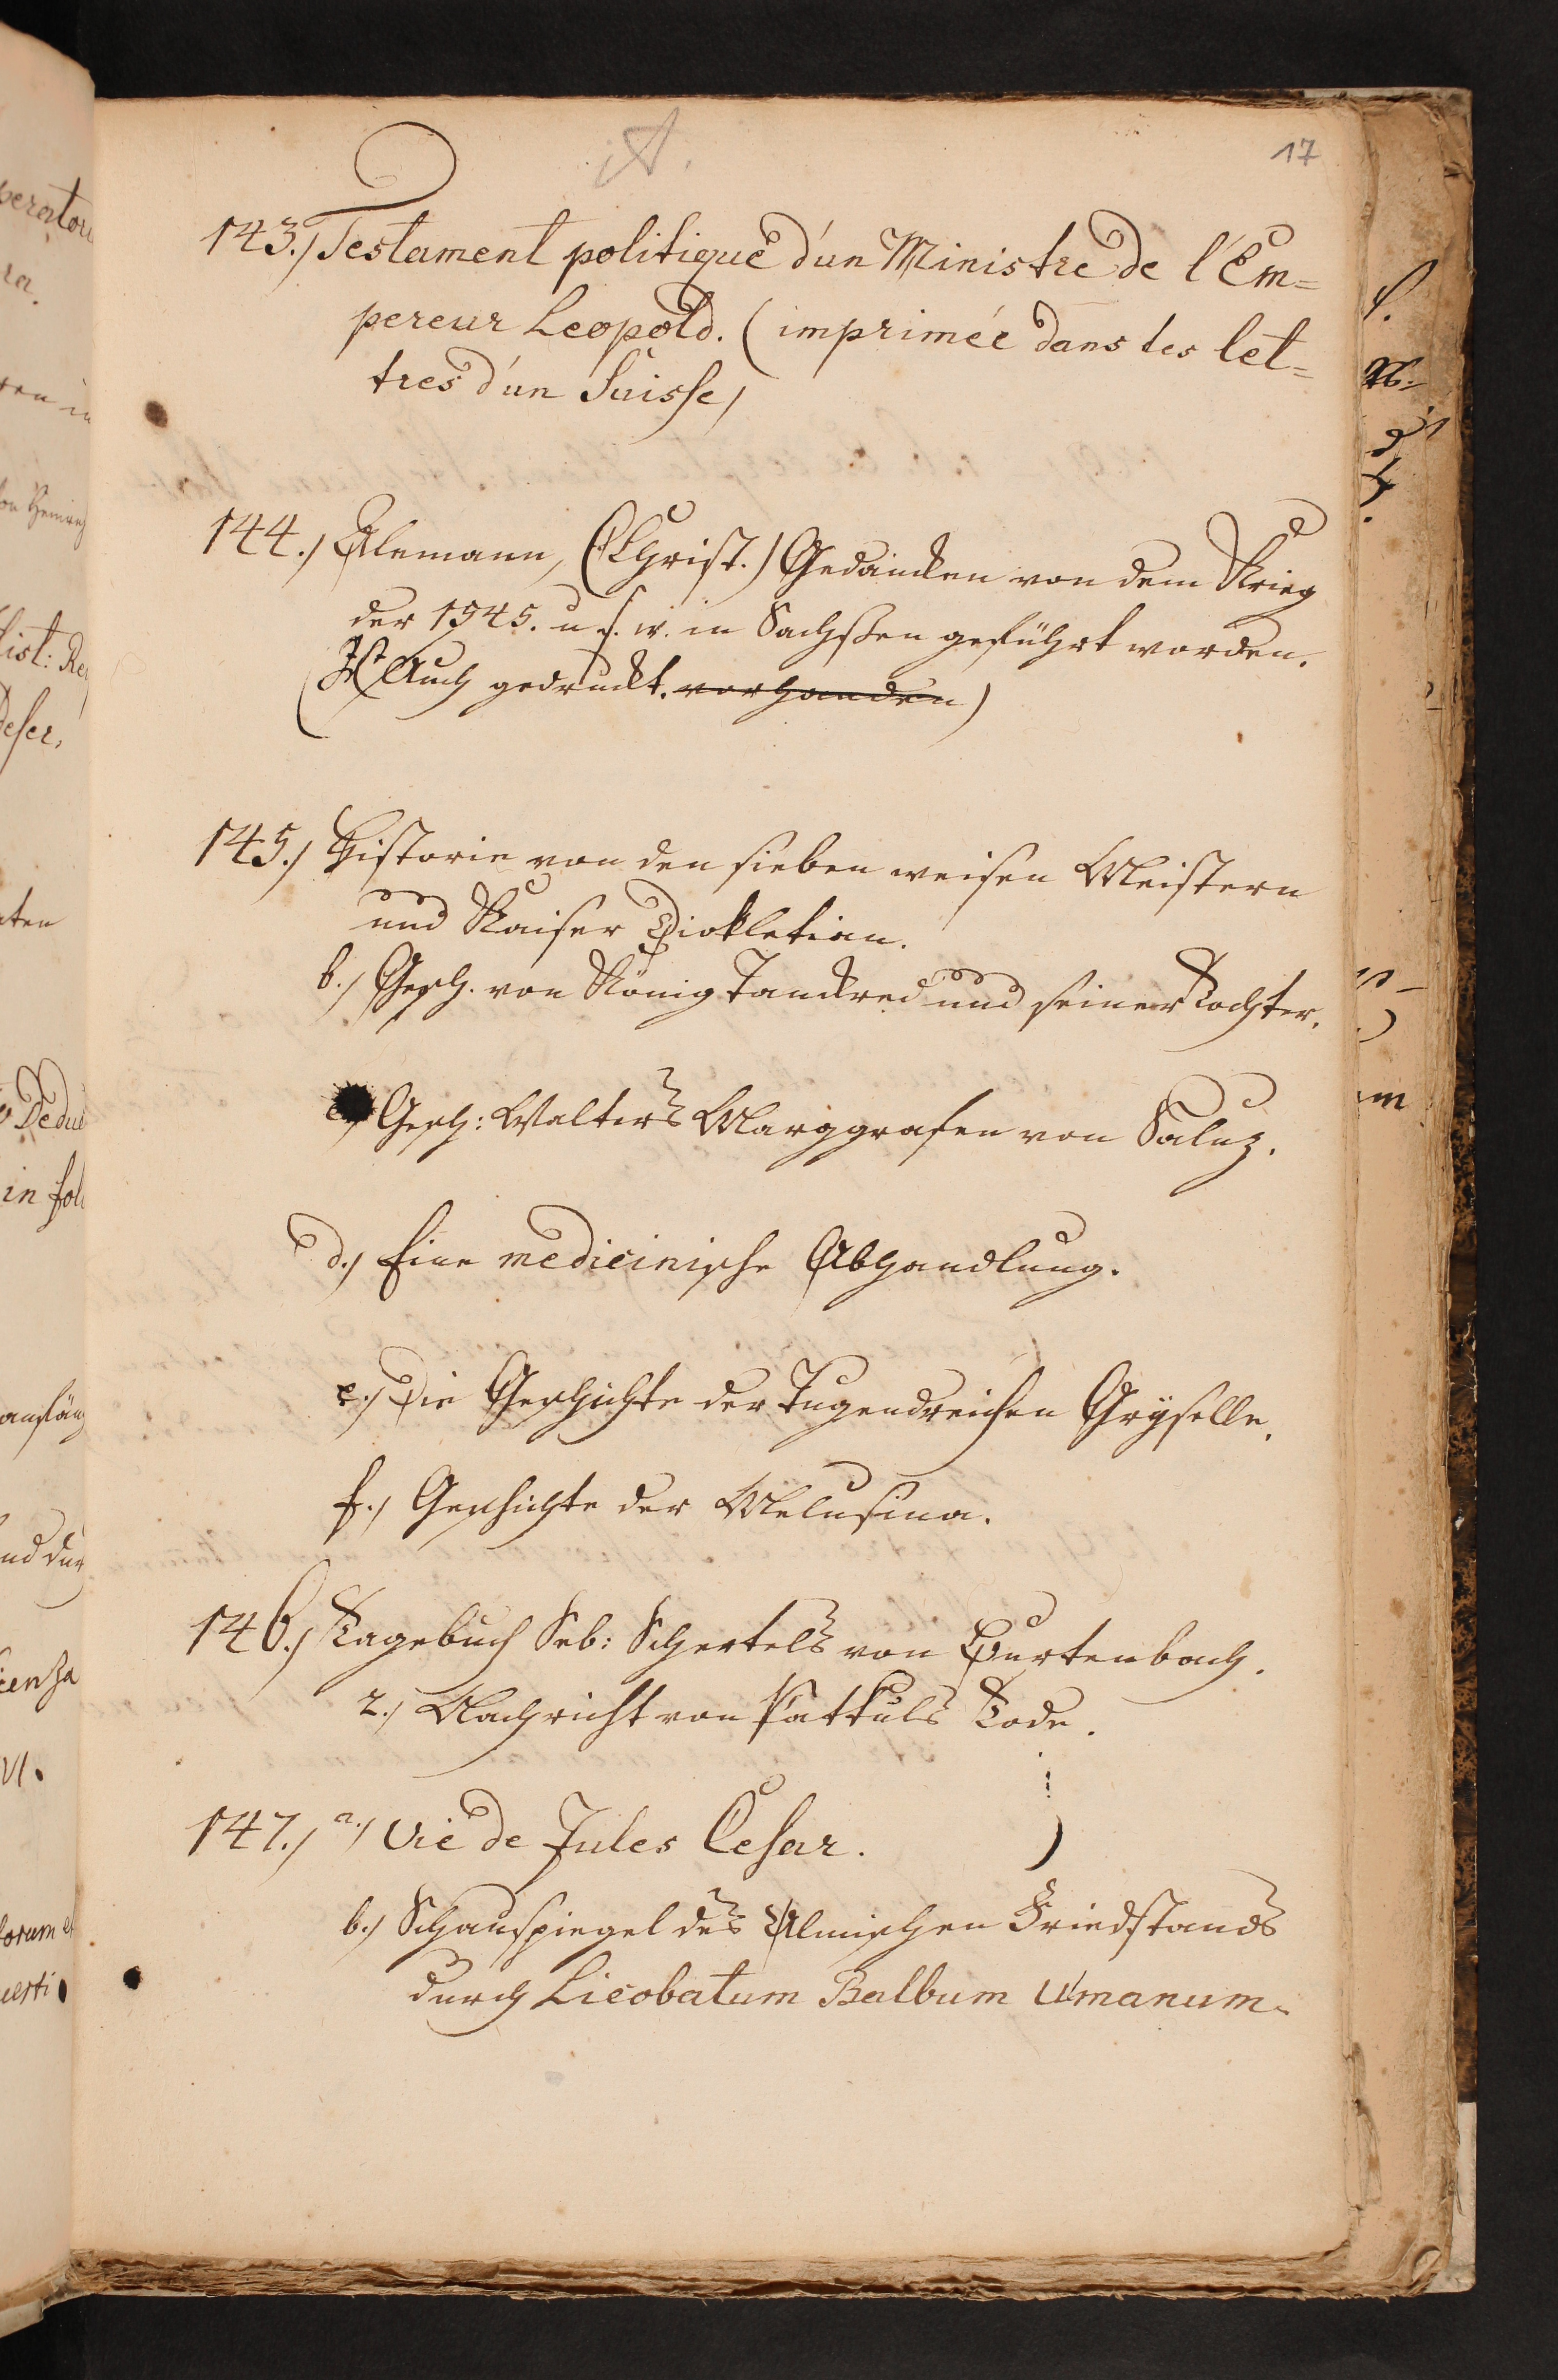 A.
17
143.) Testament politique d'un Ministre de l'Em=
pereur Leopold. (imprimée dans les let=
tres d'un Suisse)
144.) Alemann, (Christ.) Gedancken von dem Krieg
der 1545. u. s. w. in Sachßen geführt worden.
(Ist Auch gedruckt. vorhanden)
145.) Historie von den sieben weisen Meistern
und Kaiser Diokletian.
b.) Gesch. von König Tanckred und seiner Tochter.
c.) Gesch: Walters Marggrafen von Saluz.
d.) Eine medicinische Abhandlung.
e.) Die Geschichte der Tugendreichen Gryselle.
f.) Geschichte der Melusina.
146.) Tagebuch Seb: Schertels von Burtenbach.
2.) Nachricht von Patkuls Tode.
147.) a.) Vie de Jules Cesar.
b.) Schauspiegel des Ulmischen Friedstands
durch Licobatum Balbum Ulmanum.